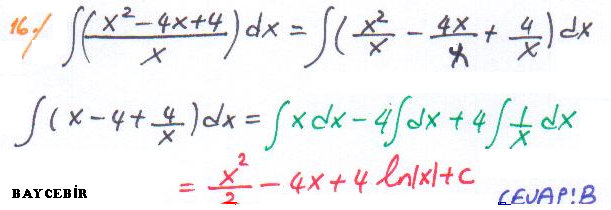 16-/ ∫((x²-4x+4)/x) dx = ∫(x²/x - 4x/x + 4/x) dx
∫(x-4+4/x) dx = ∫x dx - 4∫dx + 4∫1/x dx
= x²/2 - 4x + 4 ln|x| + c
BAYCEBİR CEVAP:B